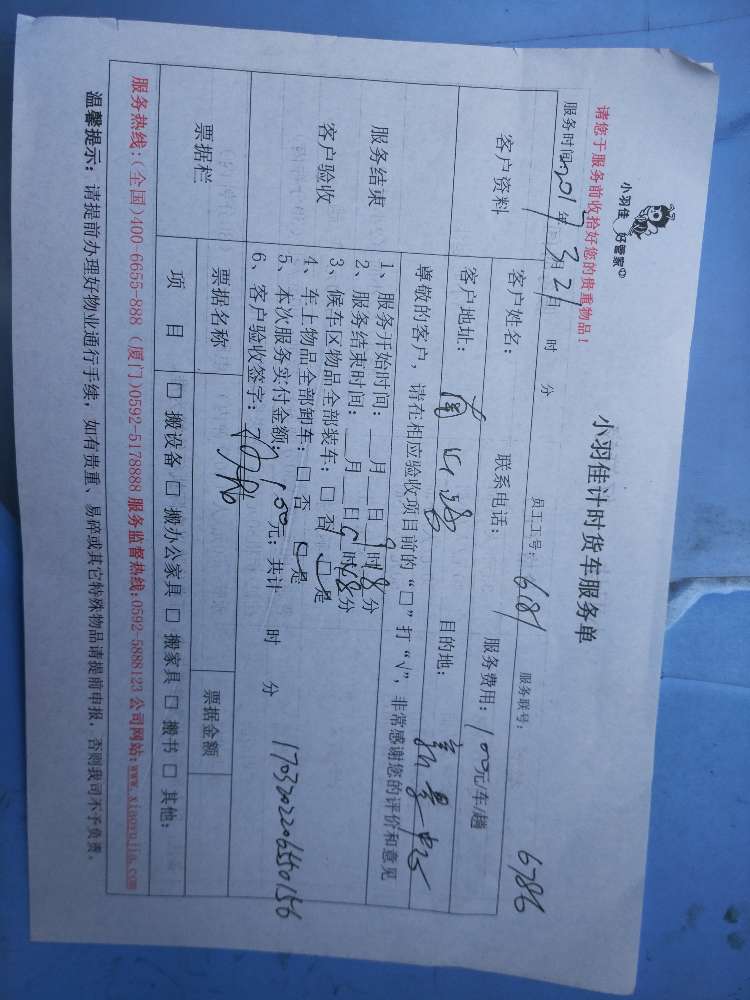 小羽佳 好管家
请您于服务前收拾好您的贵重物品！
小羽佳计时货车服务单
服务时间：2017年3月21日 时 分 员工工号：6181 服务联号： 6786
客户资料 客户姓名： 联系电话： 服务费用：100元/车/趟
客户地址： 目的地：
尊敬的客户，请在相应验收项目前的“□”打“√”，非常感谢您的评价和意见
服务结束
客户验收
1、服务开始时间：__月__日 时 分
2、服务结束时间：__月__日9时28分
3、候车区物品全部装车：□ 否 □ 是
4、车上物品全部卸车：□ 否 □ 是
5、本次服务实付金额：100元；共计 时 分
6、客户验收签字：
票据栏 票据名称 票据金额
项 目 □ 搬设备 □ 搬办公家具 □ 搬家具 □ 搬书 □ 其他：
服务热线：(全国)400-6655-888 (厦门)0592-5178888 服务监督热线：0592-5888123 公司网站：www.xiaoyujia.com
温馨提示：请提前办理好物业通行手续，如有贵重、易碎或其它特殊物品请提前申报，否则我司不予负责。